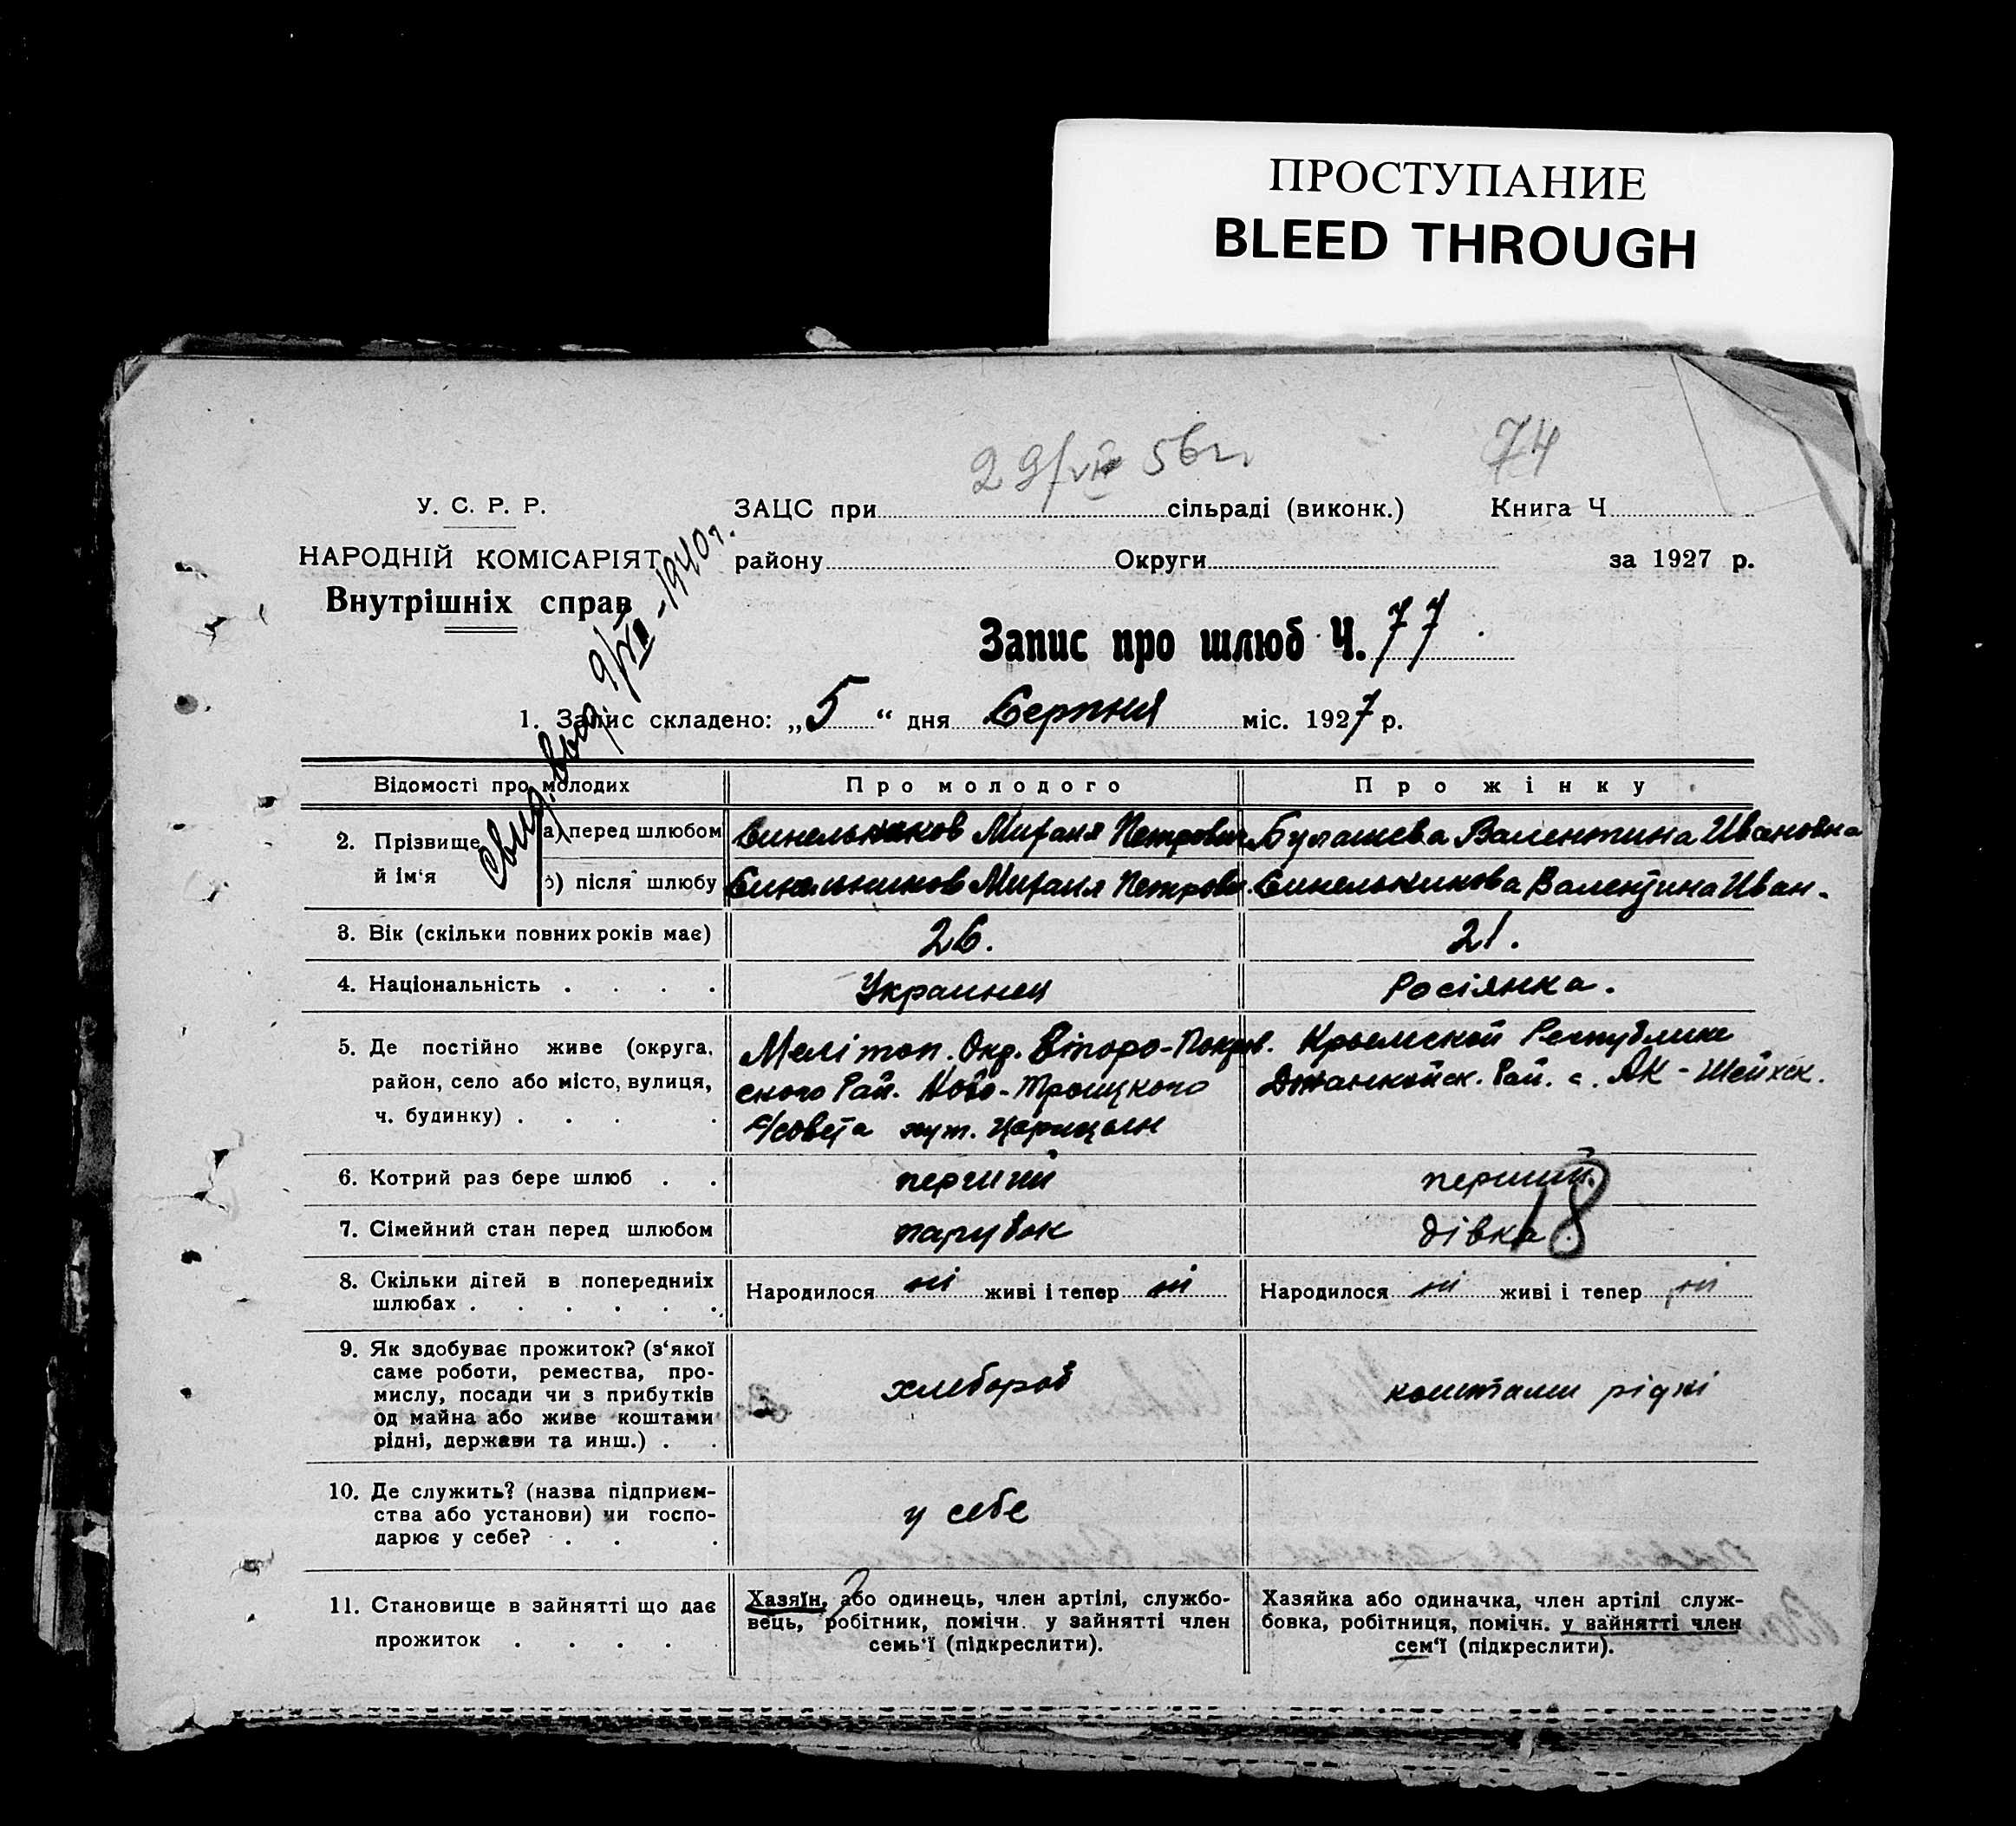 ПРОСТУПАНИЕ
BLEED THROUGH
29/VII 56 г.
74
У. С. Р. Р.
НАРОДНІЙ КОМІСАРІЯТ
Внутрішніх справ
ЗАЦС при сільраді (виконк.) Книга Ч
району Округи за 1927 р.
Свид. выд. 9/VII - 1940 г.
Запис про шлюб Ч. 77
1. Запис складено: „5“ дня Серпня міс. 1927 р.
Відомості про молодих Про молодого Про жінку
2. Прізвище й ім‘я
а) перед шлюбом Синельников Петрович Булашева Валентина Ивановна
б) після шлюбу Синельников Петрови. Синельникова Валентина Иван.
3. Вік (скільки повних років має) 26. 21.
4. Національність . . . . Украинец Росіянка.
5. Де постійно живе (округа, район, село або місто, вулиця, ч. будинку) . . . .
Мелітоп. Окр. Второ-Покров.
ского Рай. Ново-Троицкого
с/совета хут. Царицын
Крымской Республике
Джанкойск. Рай. с. АК-Шейхск.
6. Котрий раз бере шлюб . . перший перший.
7. Сімейний стан перед шлюбом парубок дівка
18
8. Скільки дітей в попередниіх шлюбах . . . . . . Народилося ні живі і тепер ні Народилося ні живі і тепер ні
9. Як здобуває прожиток? (з‘якої
саме роботи, ремества, про-
мислу, посади чи з прибутків
од майна або живе коштами
рідні, держави та инш.) . .
хлебороб коштами рідні
10. Де служить? (назва підприєм-
ства або установи) чи госпо-
дарює у себе? . . .
у себе
11. Становище в зайнятті що дає
прожиток . . . .
Хазяїн, або одинець, член артілі, службо-
вець, робітник, помічн. у зайнятті член
семь‘ї (підкреслити).
Хазяйка або одиначка, член артілі служ-
бовка, робітниця, помічн. у зайнятті член
сем‘ї (підкреслити).